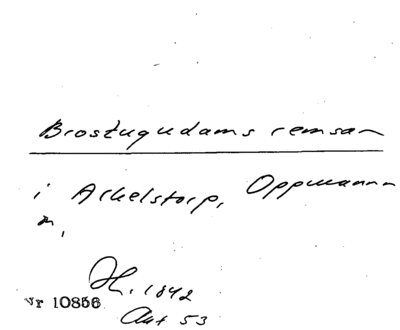 Brostugudams remsan
i Arkelstorp, Oppmanna
n.
H. 1842
Nr 10856
Akt 53